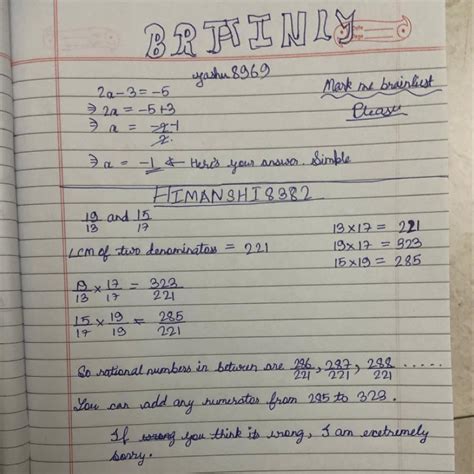 BRAINLY
yashu8969
2a-3=-5
⇒ 2a = -5+3
⇒ a = -2 -1 / 2
⇒ a = -1 ← Here's your answer. Simple
Mark me brainliest
Please
HIMANSHI8382
19/13 and 15/17
LCM of two denominators = 221
13×17 = 221
19×17 = 323
15×19 = 285
19/13 × 17/17 = 323/221
15/17 × 19/19 = 285/221
So rational numbers in between are 286/221, 287/221, 288/221 ......
You can add any numerator from 285 to 323.
If wrong you think its wrong, I am extremely
sorry.